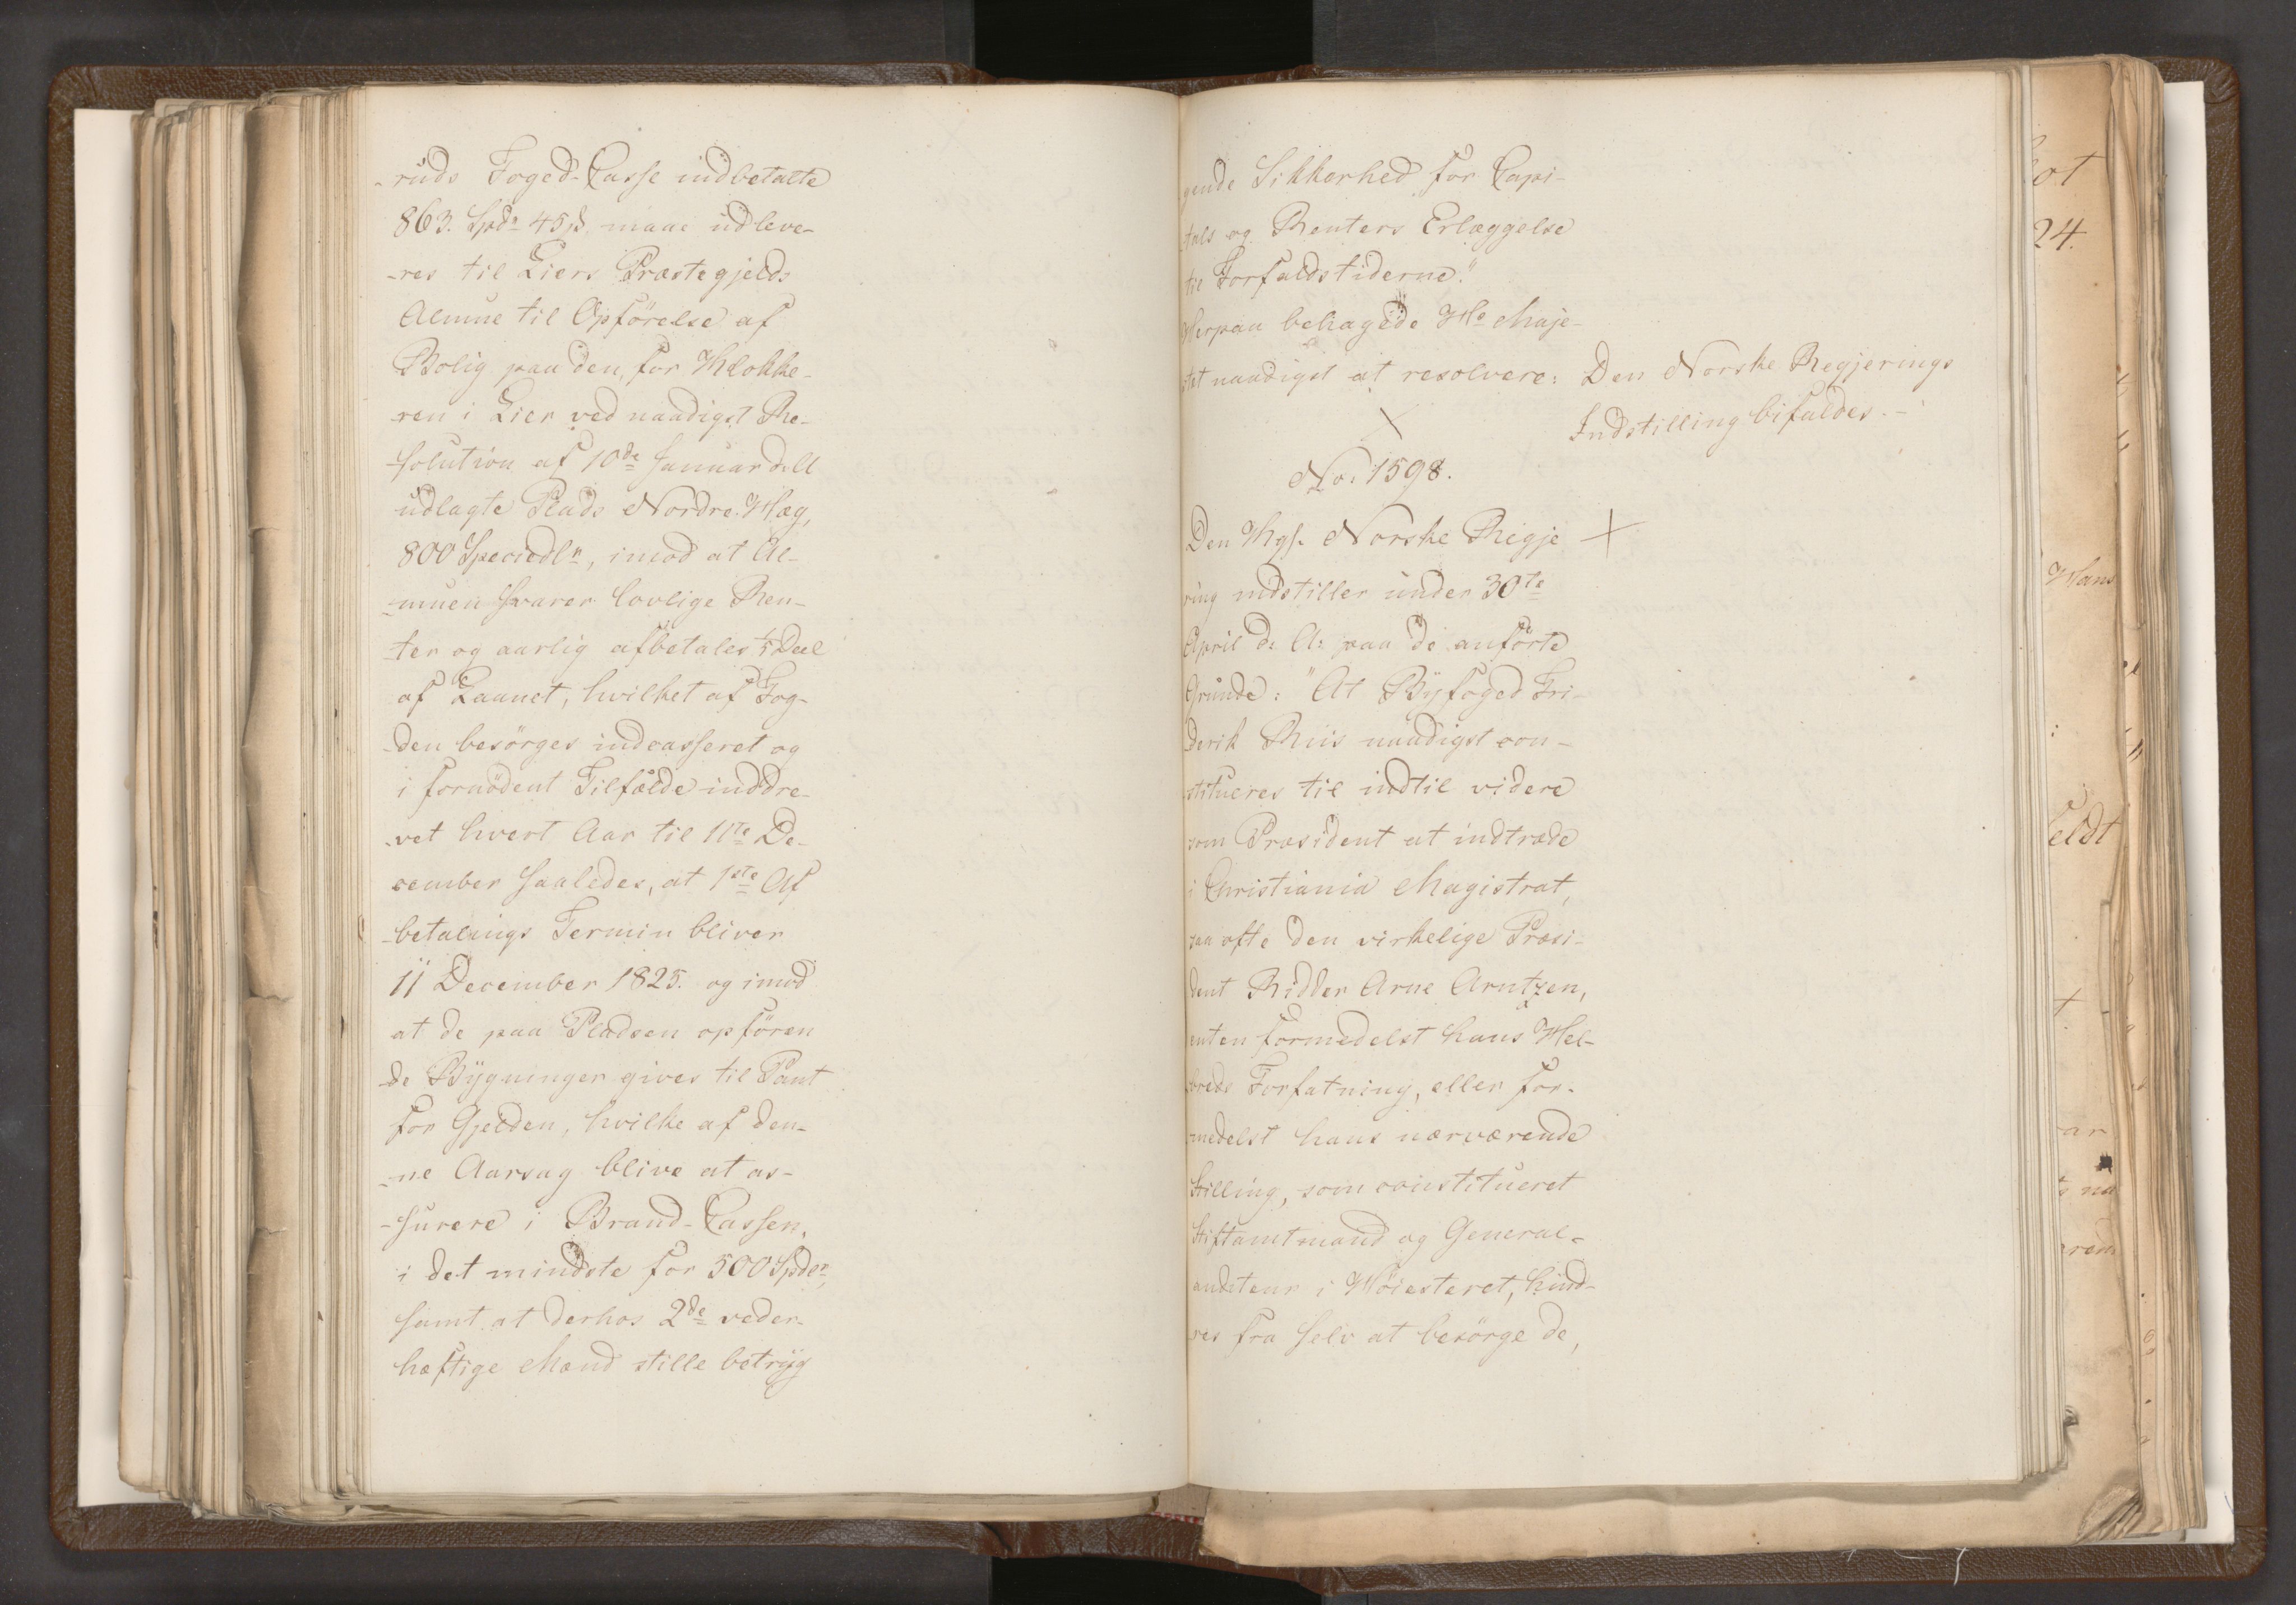 -ruds Foged-Casse indbetalte
863. Spdr 45ß, maae udleve-
-res til Liers Præstegjelds
Almue til Opförelse af
Bolig paa den, for Klokke-
-ren i Lier ved naadigst Re-
-solution af 10de Januar d. A
udlagte Plads Nordre-Hæg,
800 Speciedlr, imod at Al-
-muen svarer lovlige Ren-
-ter og aarlig afbetales 1/5 Deel
af Laanet, hvilket af Fog-
-den besörges indcasseret og
i fornödent Tilfælde inddre-
-vet hvert Aar til 11te De-
cember saaledes, at 1ste Af
-betalings Termin bliver
11 December 1825. og imod
at de paa Pladsen opfören
-de Bygninger gives til Pant
for Gjelden, hvilke af den-
-ne Aarsag blive at as-
-surere i Brand-Cassen,
i det mindste for 500 Spdr,
samt at derhos 2de veder-
hæftige Mænd stille betryg
gende Sikkerhed for Capi-
tals og Renters Erlæggelse
til Forfaldstiderne."
Herpaa behagede Hs Maje-
stæt naadigst at resolvere: Den Norske Regjerings
Indstilling bifaldes. -
No: 1598.
Den Kgl. Norske Regje
ring indstiller under 30te
April d: A: paa de anförte
Grunde: "At Byfoged Fri-
derik Riis naadigst con-
stitueres til indtil videre
som Præsident at indtræde
i Christiania Magistrat,
saa ofte den virkelige Præsi-
dent Ridder Arne Arntzen,
enten formedelst hans Hel-
breds Forfatning, eller for-
medelst hans nærværende
Stilling, som constitueret
Stiftamtmand og General-
auditeur i Höiesteret, hind-
res fra selv at besörge de,
24.
Hans
eldt